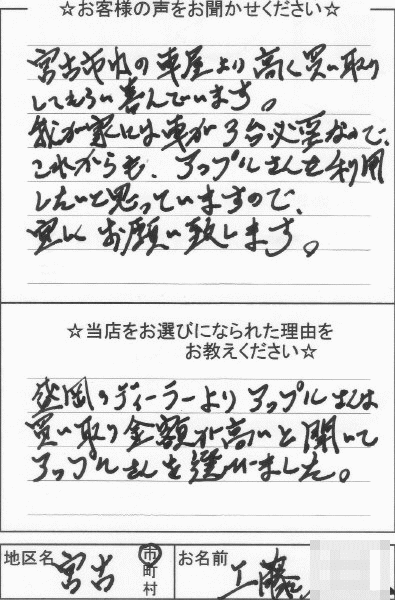 ☆お客様の声をお聞かせください☆
宮古市内の車屋より高く買い取り
してもらい喜んでいます。
我が家には車が3台必要なので、
これからも、アップルさんを利用
したいと思っていますので、
宜しくお願い致します。
☆当店をお選びになられた理由を
お教えください☆
盛岡のディーラーよりアップルさんは
買い取り金額が高いと聞いて
アップルさんを選びました。
地区名 宮古 市町村 お名前 工藤